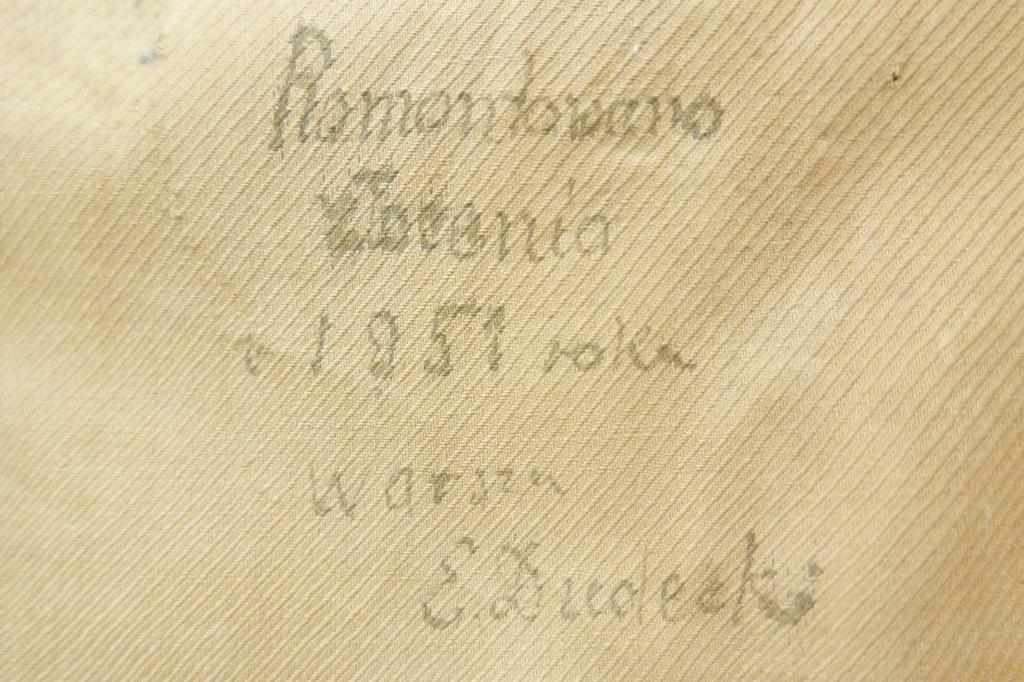 Remontowano
w Toronio
w 1951 roku
Warsza
E. Dudecki